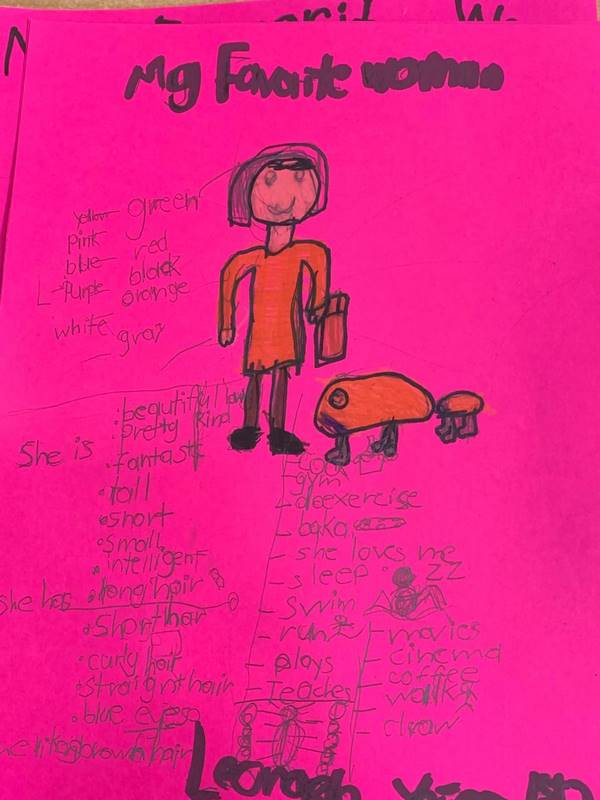 My Favorite woman
yellow green
pink red
blue black
Purple orange
white gray
She is
beautiful
pretty kind
fantast
tall
short
small
intelligent
she has long hair
short hair
curly hair
straight hair
blue eyes
brown hair
gym
do exercise
she loves me
sleep ZZ
swim
run
plays
Teaches
movies
cinema
coffee
walk
draw